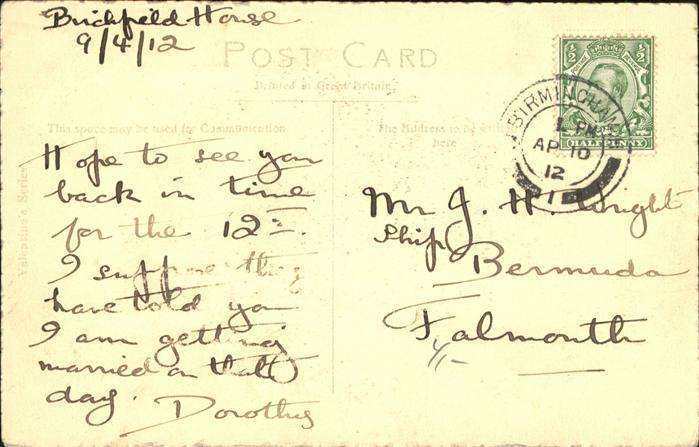 Birchfield House
9/4/12
POST CARD
Printed in Great Britain
This space may be used for Communication
The Address to be written
here
Valentine's Series
Hope to see you
back in time
for the 12th.
I suppose they
have told you
I am getting
married on that
day. Dorothy
Mr J. H. Wright
Ship Bermuda
Falmouth
BIRMINGHAM
PM
AP 10
12
1
½ ½
HALFPENNY